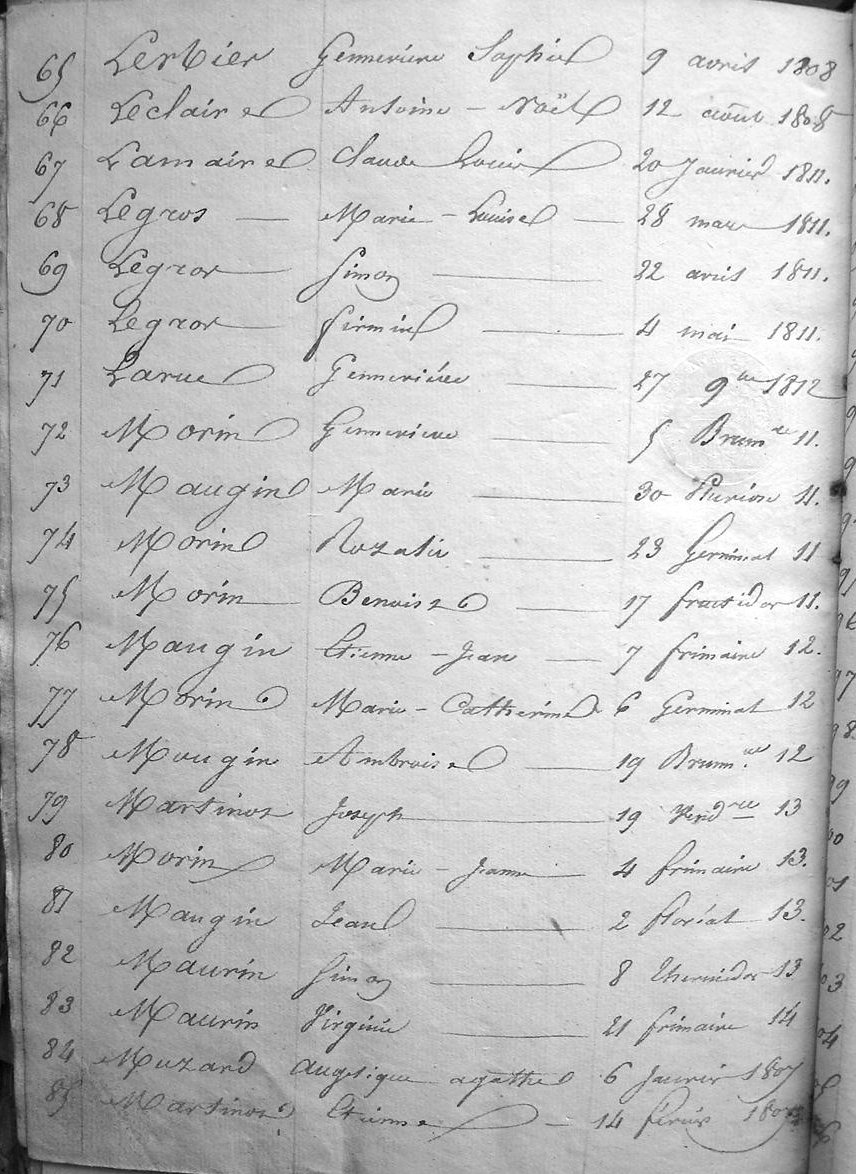 65 Lerbier Genneviere Sophie 9 avril 1808
66 Leclaire Antoine - Noël 12 août 1808
67 Lamaire Claude Louis 20 Janvier 1811.
68 Legros — Marie - Louise — 28 mars 1811.
69 Legros — Simon — 22 avril 1811.
70 Legros — firmin — 4 mai 1811.
71 Larue Genneviéve — 27 9bre 1812
72 Morin Gennevieve — 5 Brumre 11.
73 Maugin Marie — 30 Pluviose 11.
74 Morin Rozalie — 23 Germinal 11
75 Morin Benoist — 17 fructidor 11.
76 Maugin Etienne - Jean — 7 frimaire 12.
77 Morin Marie - Catherine 6 Germinal 12
78 Mougin Ambroise — 19 Brumre 12
79 Martinot Joseph — 19 Vendre 13
80 Morin Marie - Jeanne — 4 frimaire 13.
81 Maugin Jean — 2 floréal 13.
82 Maurin Simon — 8 thermidor 13
83 Maurin Virginie — 21 frimaire 14
84 Muzard Angelique agathe 6 Janvier 1807
85 Martinot Etienne — 14 février